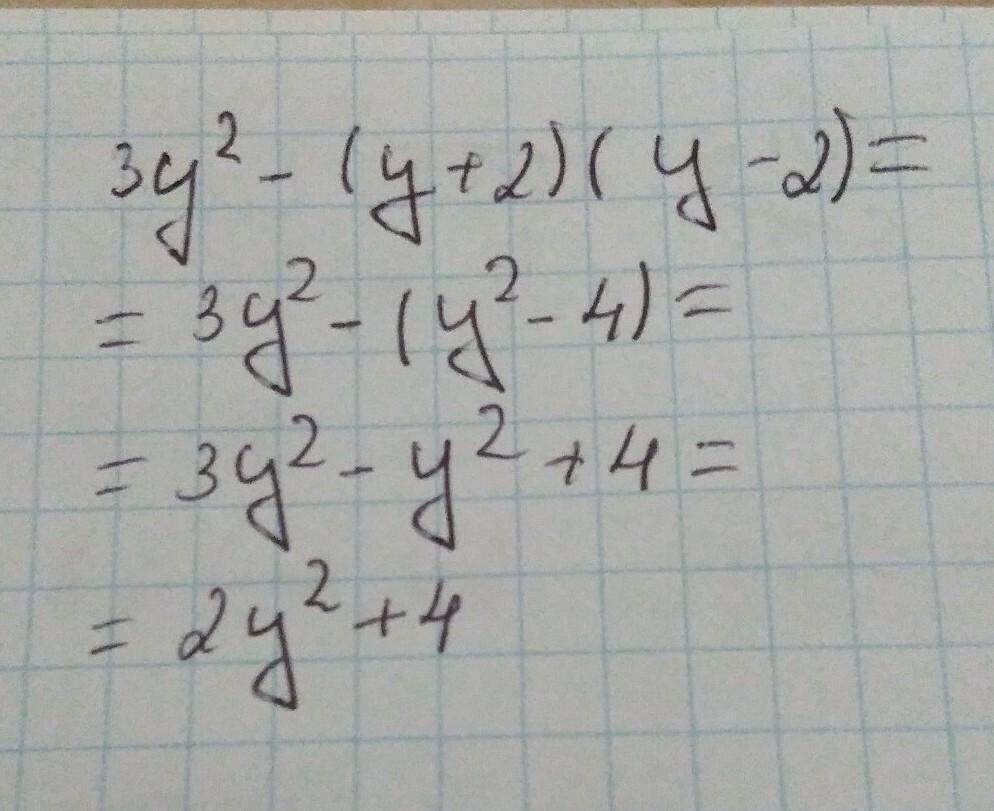 3y² - (y+2)(y-2)=
= 3y² - (y² - 4) =
= 3y² - y² + 4 =
= 2y² + 4